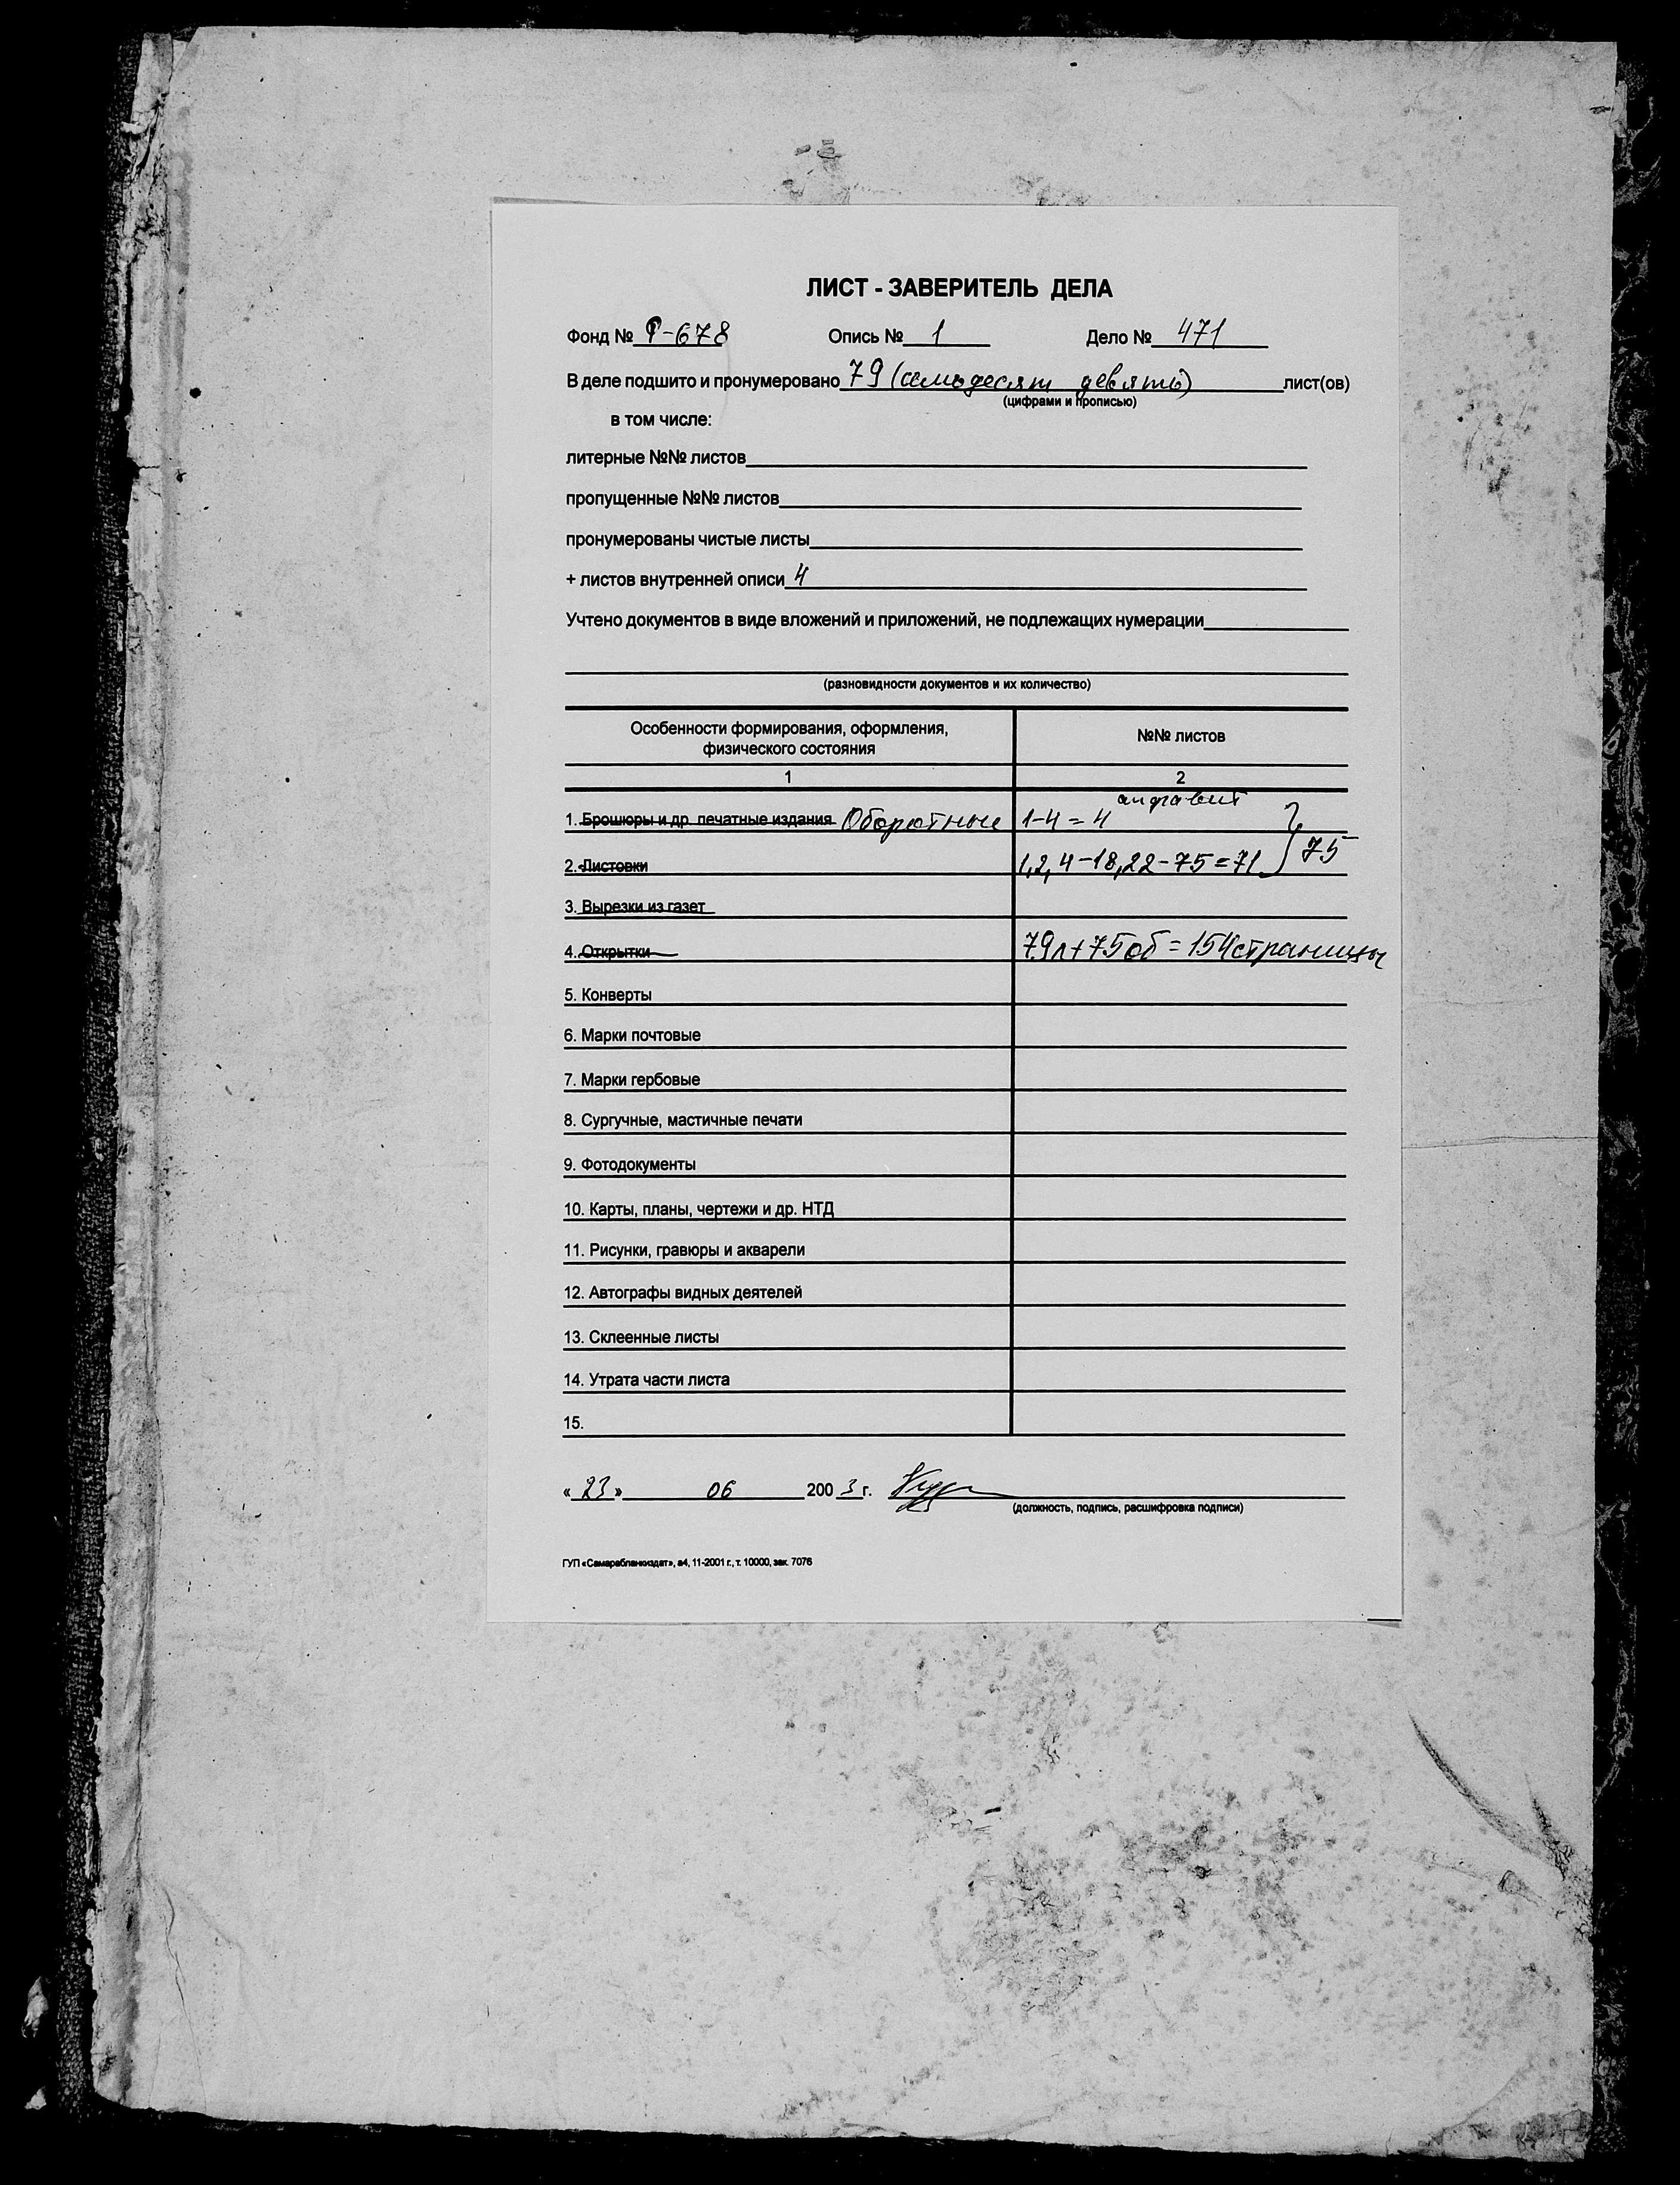 ЛИСТ - ЗАВЕРИТЕЛЬ ДЕЛА
Фонд № Р-678 Опись № 1 Дело № 471
В деле подшито и пронумеровано 79 (семьдесят девять) лист(ов)
(цифрами и прописью)
в том числе:
литерные №№ листов
пропущенные №№ листов
пронумерованы чистые листы
+ листов внутренней описи 4
Учтено документов в виде вложений и приложений, не подлежащих нумерации
(разновидности документов и их количество)
Особенности формирования, оформления, №№ листов
физического состояния
1 2
алфавит
1. Брошюры и др. печатные издания Оборотные 1-4 = 4
2. Листовки 1,2,4-18,22-75=71 } 75
3. Вырезки из газет
4. Открытки 79л+75об=154страницы
5. Конверты
6. Марки почтовые
7. Марки гербовые
8. Сургучные, мастичные печати
9. Фотодокументы
10. Карты, планы, чертежи и др. НТД
11. Рисунки, гравюры и акварели
12. Автографы видных деятелей
13. Склеенные листы
14. Утрата части листа
15.
« 23 » 06 200 3 г.
(должность, подпись, расшифровка подписи)
ГУП «Самарабланкиздат», а4, 11-2001 г., т. 10000, зак. 7076